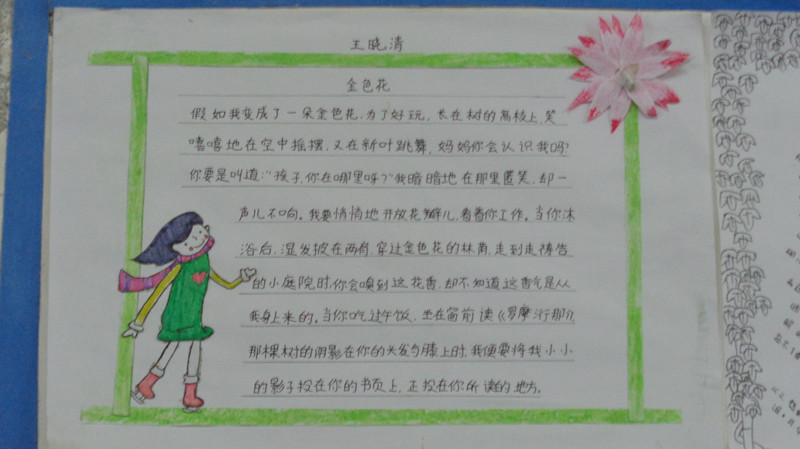 王晓清
金色花
假如我变成了一朵金色花,为了好玩,长在树的高枝上,笑
嘻嘻地在空中摇摆,又在新叶跳舞,妈妈你会认识我吗?
你要是叫道:“孩子,你在哪里呀?”我暗暗地在那里匿笑,却一
声儿不响。我要悄悄地开放花瓣儿,看着你工作。当你沐
浴后,湿发披在两肩,穿过金色花的林荫,走到走祷告
的小庭院时,你会嗅到这花香,却不知道这香气是从
我身上来的。当你吃过午饭,坐在窗前读《罗摩衍那》,
那棵树的阴影在你的头发与膝上时,我便要将我小小
的影子投在你的书页上,正投在你所读的地方。